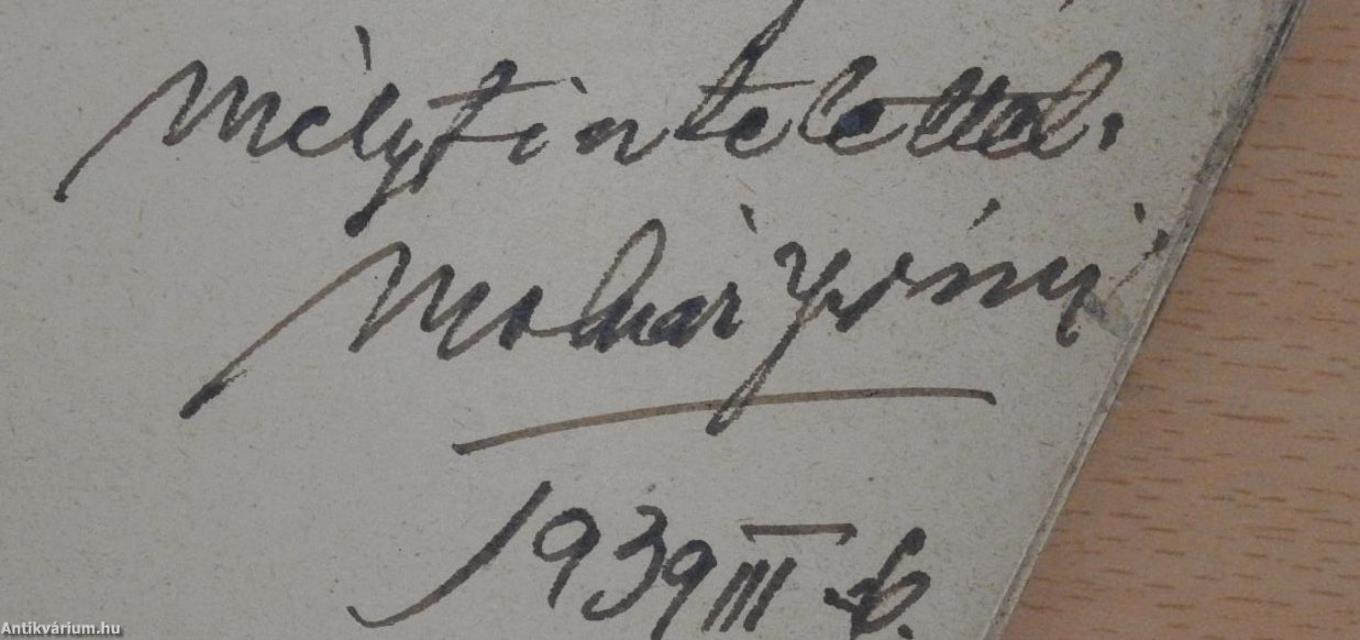 Mély tisztelettel.
Molnár
1939 III
Antikvárium.hu